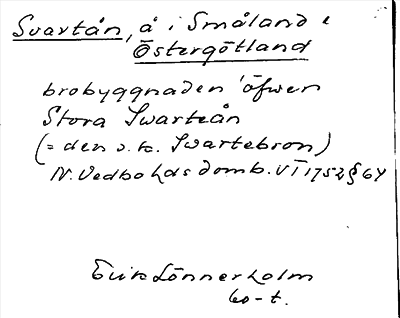 Svartån, å i Småland &
Östergötland
brobyggnaden 'öfwer
Stora Swarteån
(= den s.k. Swartebron)
N. Vedbo hds domb. VI 1752 § 64
Erik Lönnerholm
60-t.